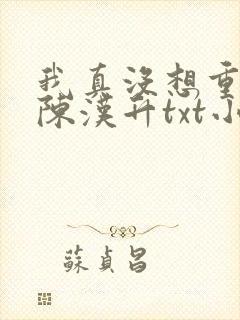 我真沒想重
陳漢升txt小
蘇貞昌